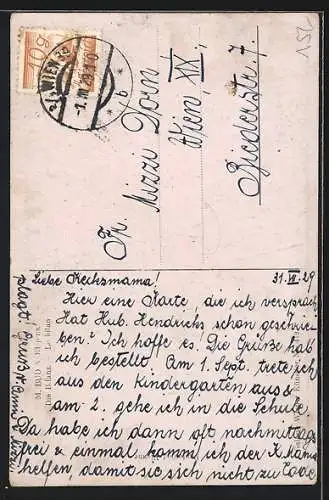 2/2 WIEN
-1.VII.29.10
* b
Fr. Mizzi Dorn
Wien, XX.
Riederstr. 7.
Liebe Rechsmama! 31. VII 29
Hier eine Karte, die ich versprach
Hat Hub. Hendrichs schon geschrie-
ben? Ich hoffe es. Die Grüße hab
ich bestellt. Am 1. Sept. trete ich
aus den Kindergarten aus &
am 2. gehe ich in die Schule.
Da habe ich dann oft nachmittags
frei & einmal komm ich der K.Mama
helfen, damit sie sich nicht zu Tode
plagt
M. BUD